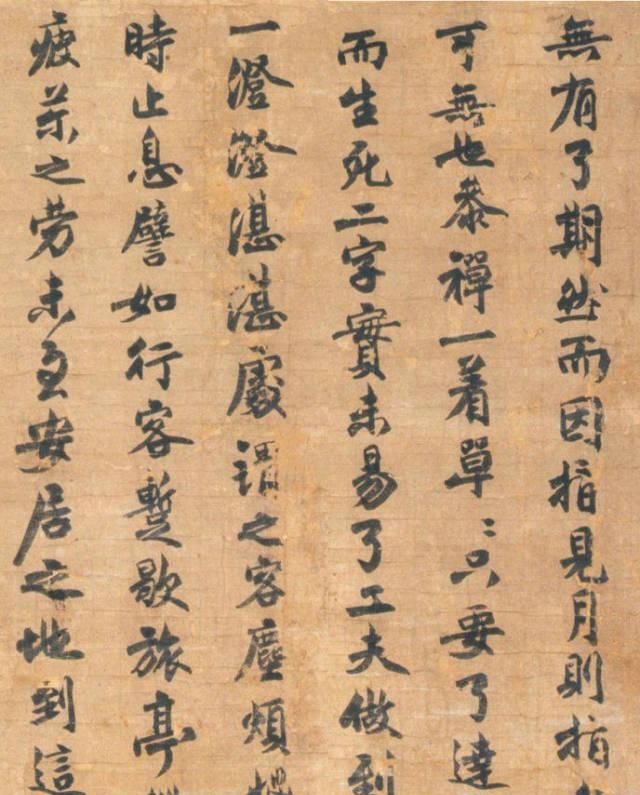 無有了期然而因指見月則指
可無也叅禪一着單〻只要了達
而生死二字實未易了工夫做到
一澄澄湛湛處謂之客塵煩
時止息譬如行客蹔歇旅亭
疲苶之勞未至安居之地到這